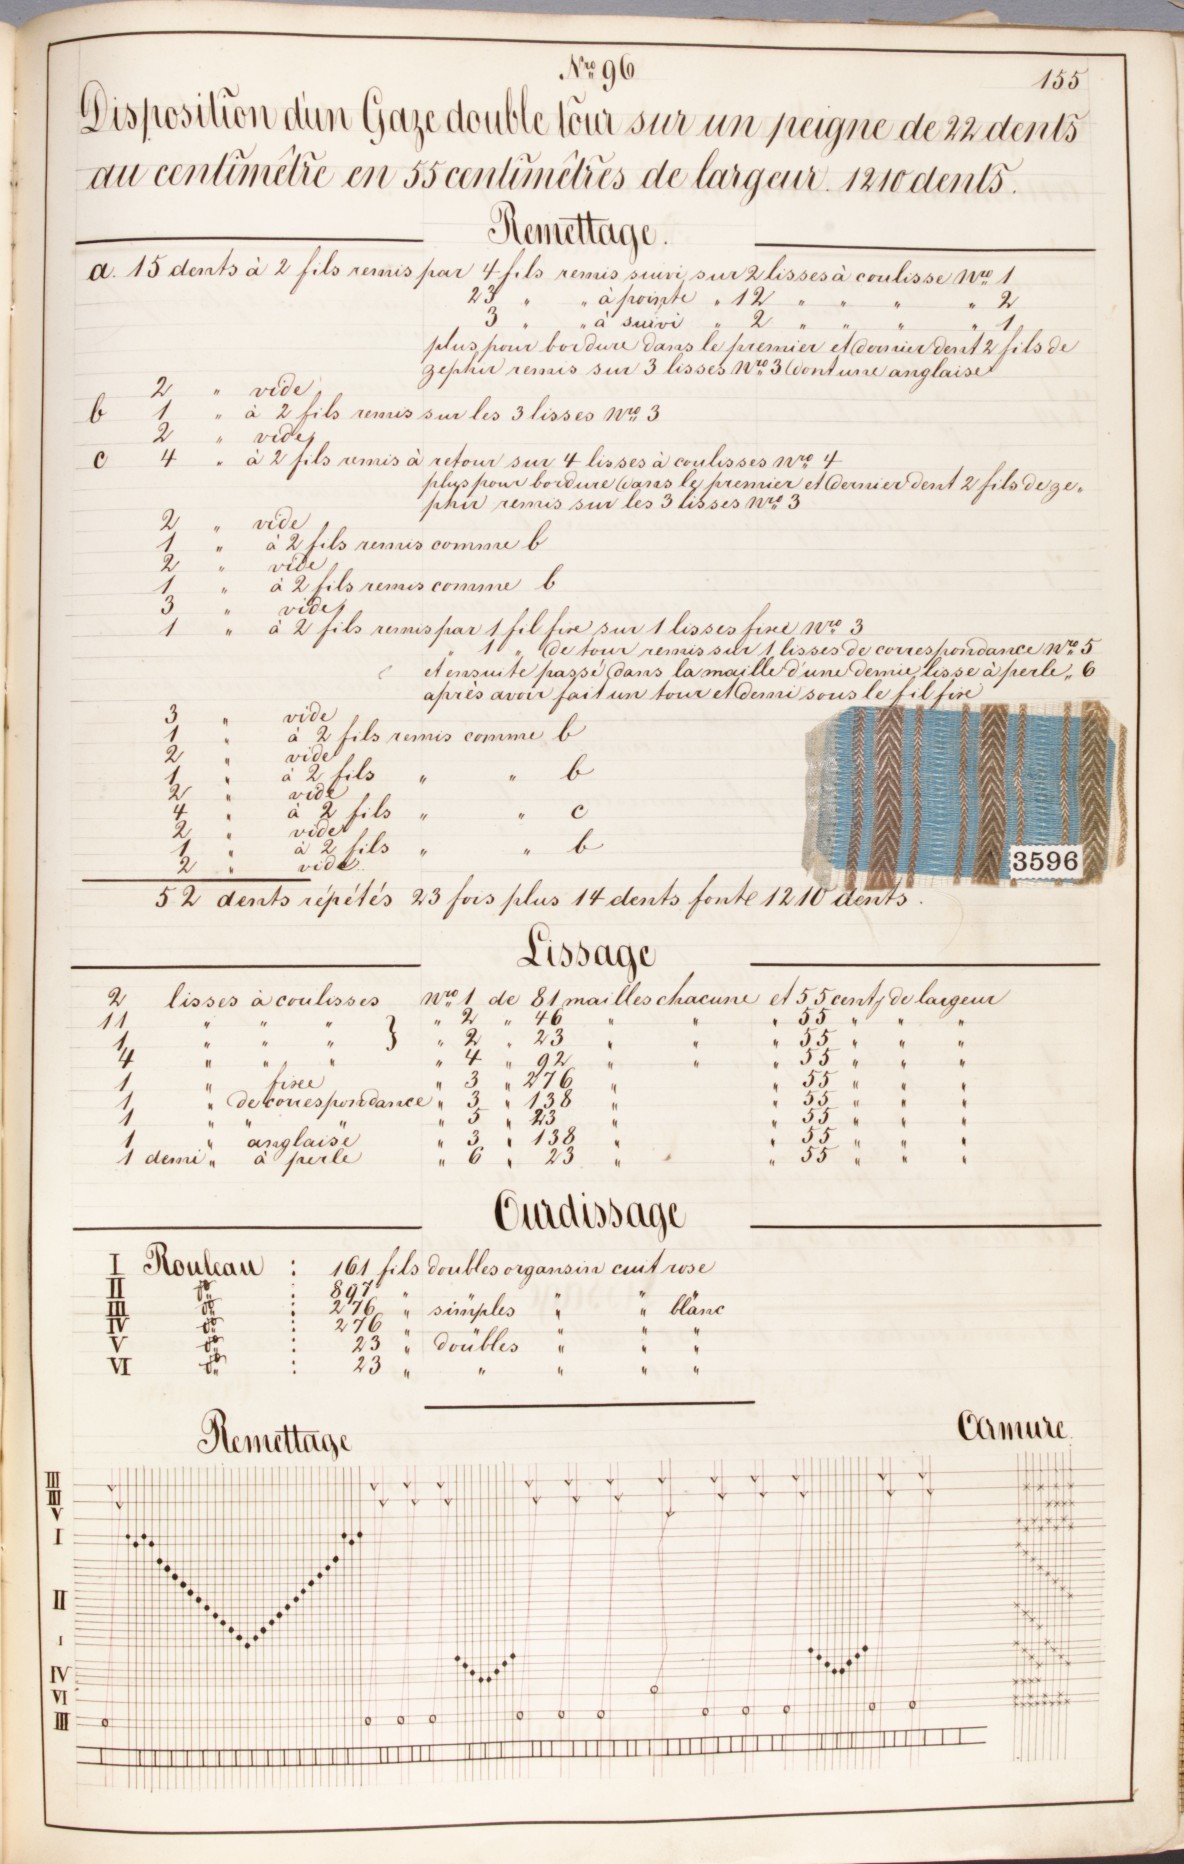 Nro 96
155
Disposition d'un Gaze double tour sur un peigne de 22 dents
au centimêtre en 55 centimêtres de largeur. 1210 dents.
Remettage.
a. 15 dents à 2 fils remis par 4 fils remis suivi sur 2 lisses à coulisse Nro 1
23 " " à pointe " 12 " " " " 2
3 " " à suivi " 2 " " " " 1
plus pour bordure dans le premier et dernier dent 2 fils de
zephir remis sur 3 lisses Nro 3 dont une anglaise
2 " vide
b 1 " à 2 fils remis sur les 3 lisses Nro 3
2 " vides
c 4 " à 2 fils remis à retour sur 4 lisses à coulisses Nro 4
plus pour bordure dans le premier et dernier dent 2 fils de ze"
phir remis sur les 3 lisses Nro 3
2 " vide
1 " à 2 fils remis comme b
2 " vide
1 " à 2 fils remis comme b
3 " vides
1 " à 2 fils remis par 1 fil fixe sur 1 lisses fixe Nro 3
" 1 " de tour remis sur 1 lisses de correspondance Nro 5
et ensuite passé dans la maille d'une demie lisse à perle " 6
après avoir fait un tour et demi sous le fil fixe
3 " vide
1 " à 2 fils remis comme b
2 " vide
1 " à 2 fils " " b
2 " vide
4 " à 2 fils " " c
2 " vide
1 " à 2 fils " " b
2 " vide
3596
52 dents répétés 23 fois plus 14 dents fonte 1210 dents.
Lissage
2 lisses à coulisses Nro 1 de 81 mailles chacune et 55 cent. de largeur
11 " " " } " 2 " 46 " " " 55 " " "
1 " " " " 2 " 23 " " 55 " " "
4 " " " " 4 " 92 " " " 55 " " "
1 " fixe " 3 " 276 " " 55 " " "
1 " de correspondance " 3 " 138 " " 55 " " "
1 " " " " 5 " 23 " " 55 " " "
1 " anglaise " 3 " 138 " " 55 " " "
1 demi " à perle " 6 " 23 " " 55 " " "
Ourdissage
I Rouleau : 161 fils doubles organsin cuit rose
II do : 897 " " " " "
III do : 276 " simples " " blanc
IV do : 276 " " " " "
V do : 23 " doubles " " "
VI do : 23 " " " " "
Remettage
Armure.
III
III
V
I
II
I
IV
VI
III